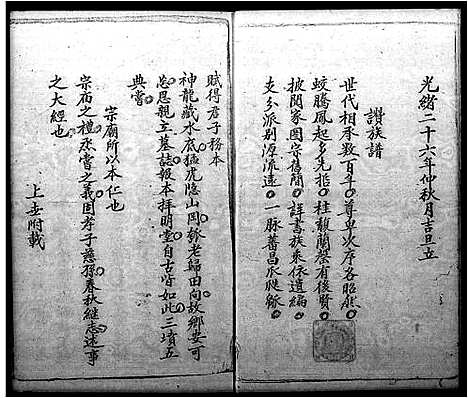 光緒二十六年仲秋月吉旦立
讚族譜
世代相承数百年尊卑次序各昭然
蛟騰鳳起多先哲桂馥蘭馨有後賢
披閱家图宗旧簡註書族乘依遺編
支分派别源流遠一脉蕃昌瓜瓞緜
賦得君子務本
神龍藏水底猛虎隐山岡
老歸田向故鄉妻可
忽思親立墓誌報本拜明堂自古皆如此三墳五
典嘗
宗廟所以本仁也
宗庙之禮烝嘗之義因孝子慈孫春秋继志述事
之大經也
上世附載